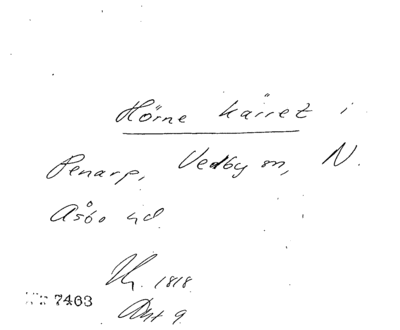 Hörne kärret i
Penarp, Vedby sn, N.
Åsbo hd
1818.
Akt 9.
Nr 7463